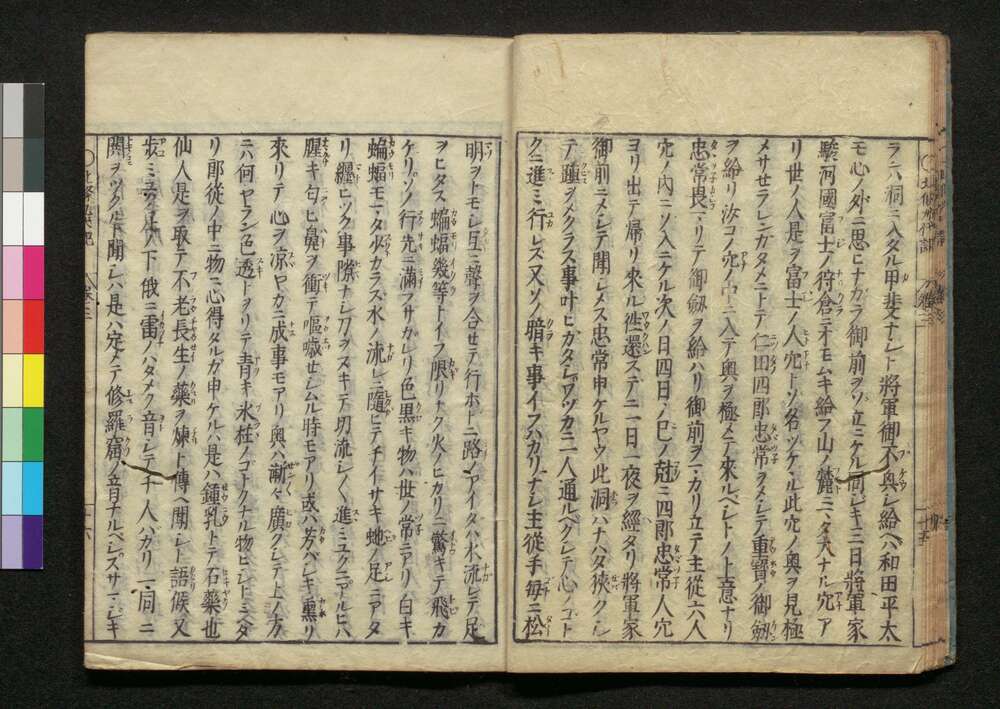 ラ六洞ニ入タル甲斐ナシト將軍御不興シ給ヘハ和田平太
モ心ノ外ニ思ヒナカラ御前ヲソ立ニケル同シキ三日將軍家
駿河國富士ノ狩倉ニオモムキ給フ山ノ麓ニ又大ナル穴ア
リ世ノ人是ヲ富士ノ人穴トソ名ツケケル此穴ノ奧ヲ見極
メサセラレンガタメニトテ仁田四郎忠常ヲメシテ重寶ノ御劔
ヲ給リ汝コノ穴ノ中ニ入テ奧ヲ極メテ來ルベシトノ上意ナリ
忠常畏リテ御劔ヲ給ハリ御前ヲマカリ立テ主從六人
穴ノ内ニソ入ニケル次ノ日四日ノ巳ノ尅ニ四郎忠常人穴
ヨリ出テ帰リ來ル徃還ステニ一日一夜ヲ經タリ將軍家
御前ニメシテ聞シメス忠常申ケルヤウ此洞ハナハタ狹クシ
テ踵ヲメクラス事叶ヒガタシアツカニ一人通ルベクシテ心ノゴト
クニ進ミ行レズ又ソノ暗キ事イフハカリナシ主從手毎ニ松
明ヲトモシ互ニ聲ヲ合セテ行ホトニ路ノアイタハ水流レテ足
ヲヒタス蝙蝠幾等トイフ限リナク火ノヒカリニ驚キテ飛カ
ケリソノ行先ニ滿フサガレリ色黒キ物ハ世ノ常ニアリ白キ
蝙蝠モマタ少カラス水ノ流レニ隨ヒテチイサキ虵ノ足ニアタ
リ纏ヒツク事隙ナシ刀ヲヌキテ切流シ〱進ミユクニアルヒハ
腥キ匂ヒ鼻ヲ衝テ嘔噦セシムル時モアリ或ハ芳バシキ熏リ
來リテ心ヲ凉ヤカニ成事モアリ奧ハ漸々廣クシテ上ノ方
ニハ何ヤラン色透トヲリテ青キ氷柱ノゴトクナル物ヒシト見ヘタ
リ郎從ノ中ニ物ニ心得タルガ申ケルハ是ハ鍾乳トテ石藥也
仙人是ヲ取テ不老長生ノ藥ヲ煉ト傳ヘ聞シト語候又
歩ミユク足ノ下俄ニ雷ノハタメク音シテ千人ハカリ一同ニ
鬨ヲツクルト聞シハ是ハ定メテ修羅窟ノ音ナルベシスサマシキ